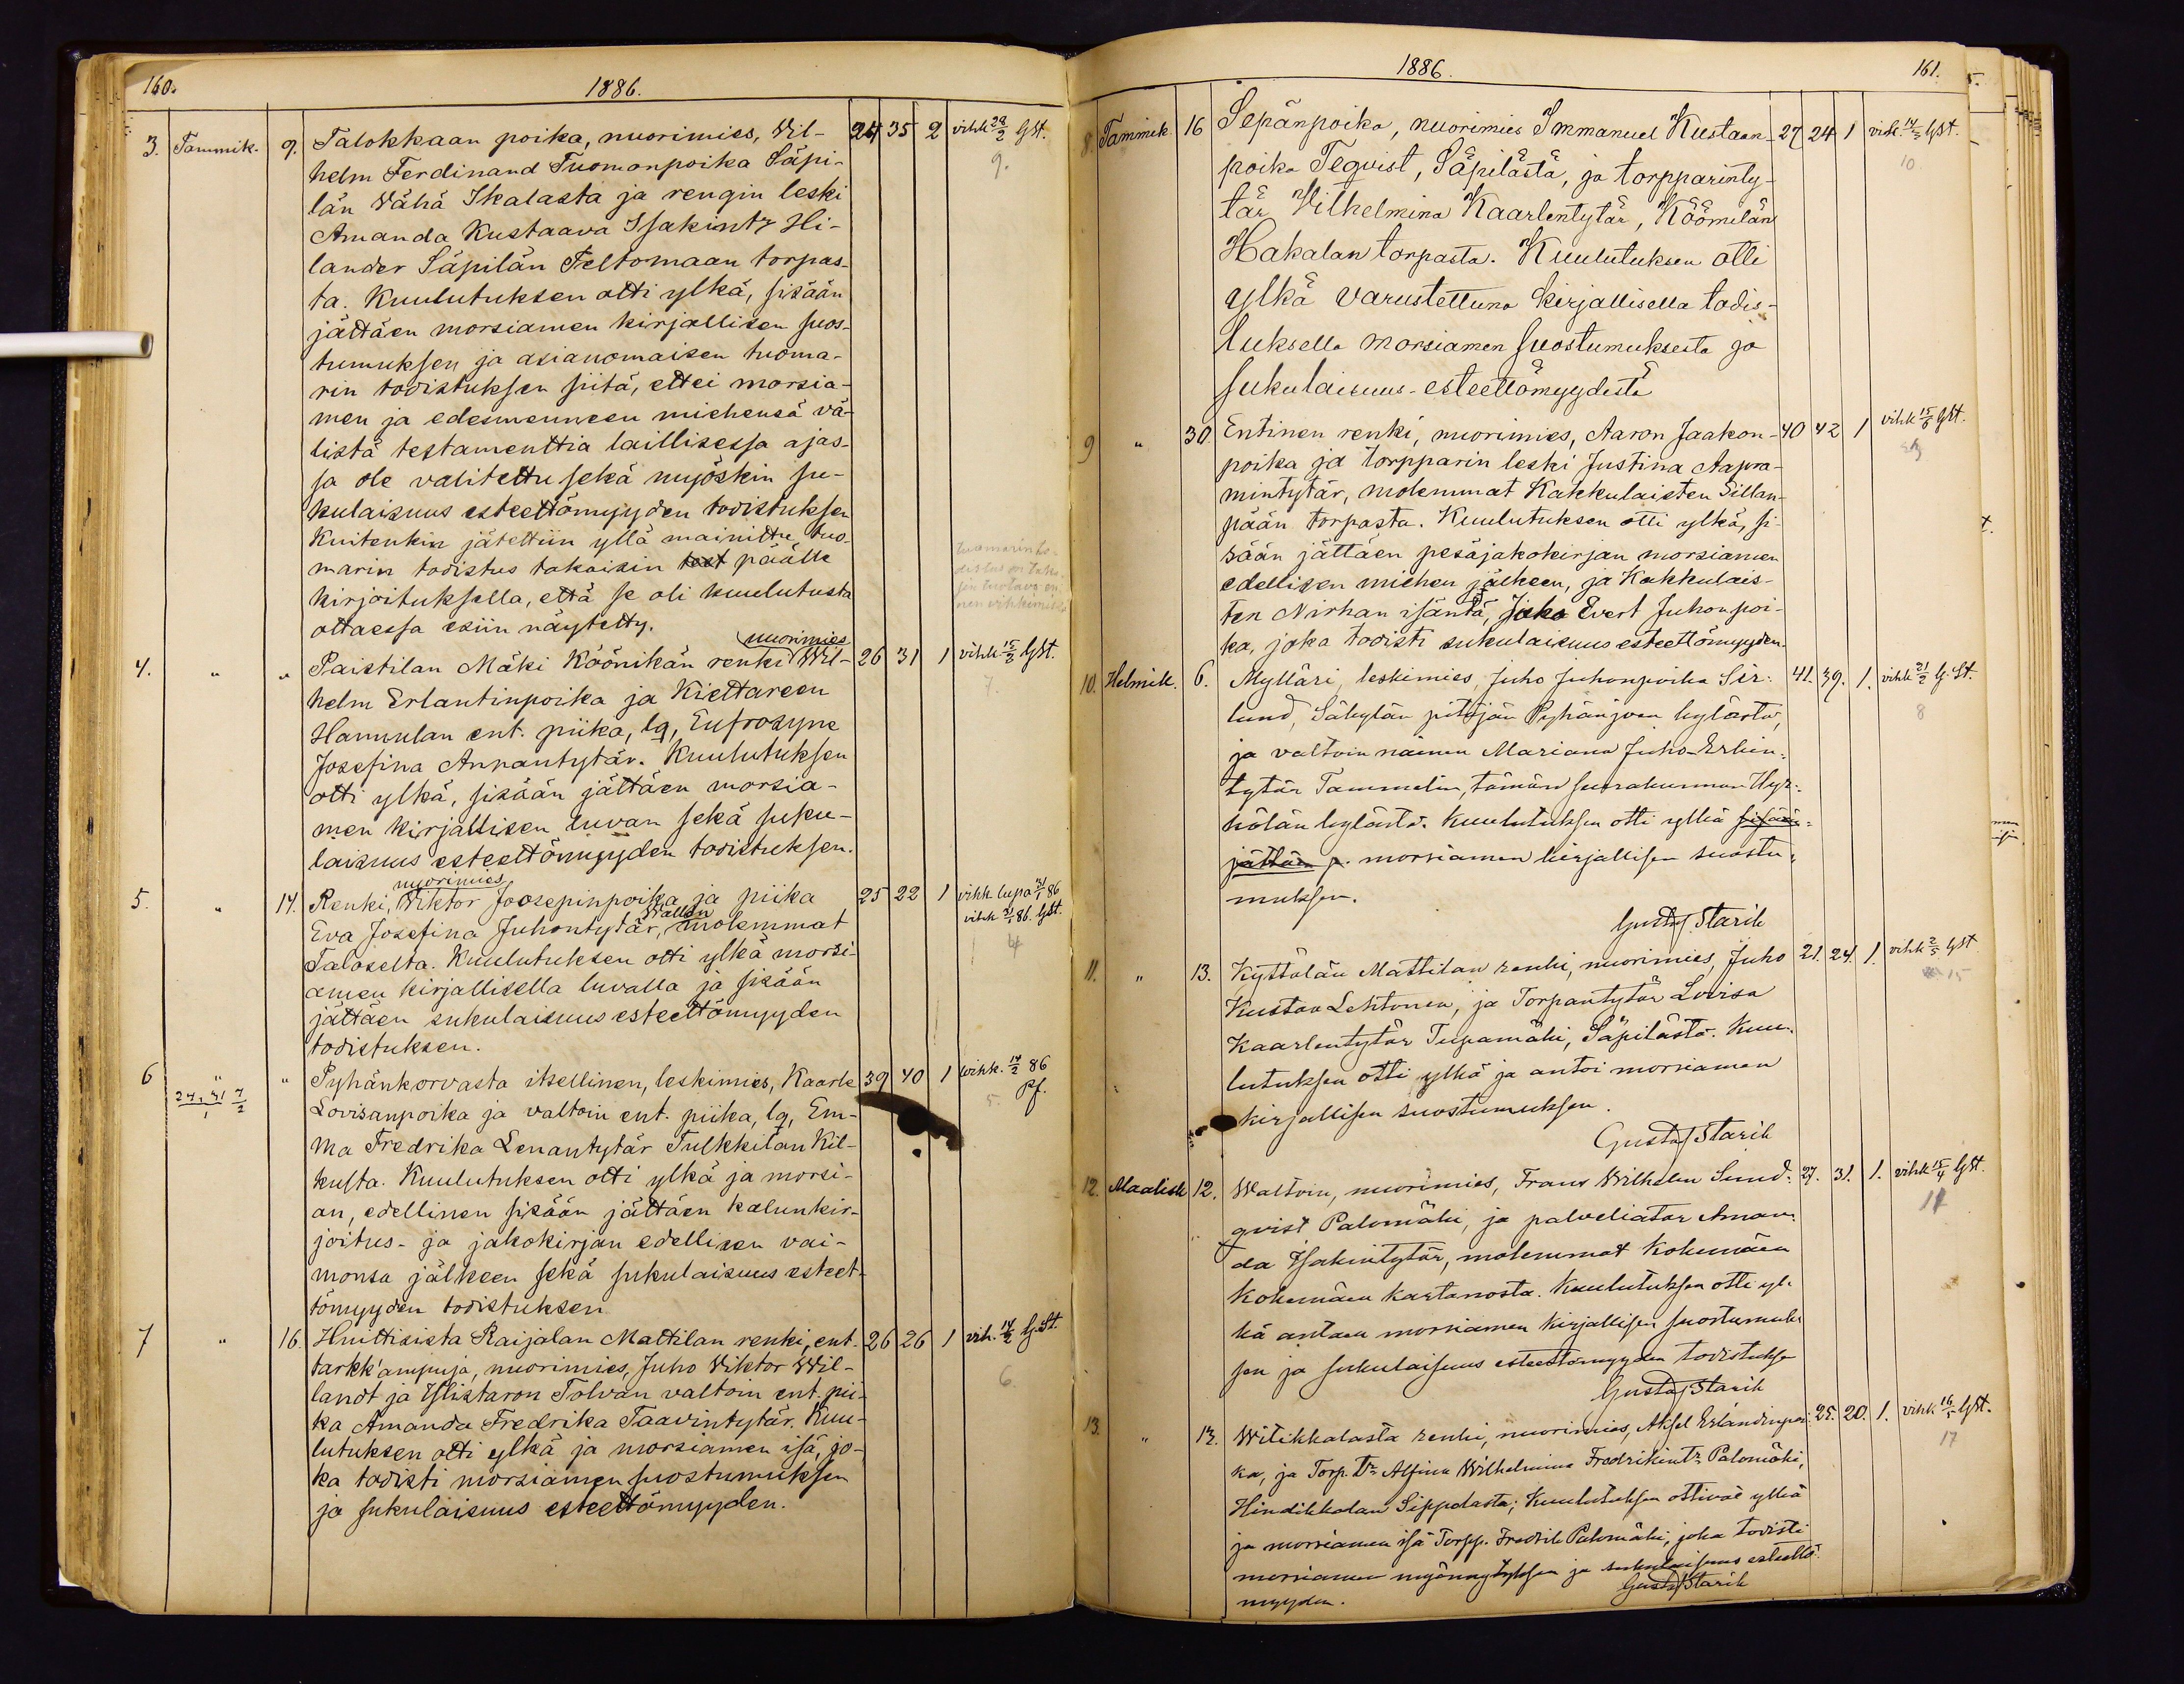 160.
1886.
3. Tammik. 9. Talokkaan poika, nuorimies, Wil- 24 35 2 vihk 28/2 GSt.
helm Ferdinand Tuomonpoika Säpi- 9.
län Vähä Ikalasta ja rengin leski
Amanda Kustaava Isakintr Hi-
lander Säpilän Feltomaan torpas-
ta. Kuulutuksen otti ylkä, sisään
jättäen morsiamen kirjallisen suos-
tumuksen ja asianomaisen tuoma-
rin todistuksen siitä, ettei morsia-
men ja edesmenneen miehensä vä-
listä testamenttia laillisessa ajas-
sa ole valitettu sekä myöskin su-
kulaisuus esteettömyyden todistuksen
Kuitenkin jätettiin yllä mainittu tuo-
marin todistus takaisin test päälle
kirjoituksella, että se oli kuulutusta
ottaessa esiin näytetty.
tuomarin to-
distus on taka-
sin tuotava en-
nen vihkimistä
nuorimies
4. " " Paistilan Mäki Köönikän renki Wil- 26 31 1 vihk 15/2 GSt.
helm Erlantinpoika ja Kiettareen 7.
Hannulan ent. piika, lq, Eufrosyne
Josefina Annantytär. Kuulutuksen
otti ylkä, sisään jättäen morsia-
men kirjallisen luvan sekä suku-
laisuus esteettömyyden todistuksen.
nuorimies
5. " 14. Renki, Viktor Joosepinpoika ja piika 25 22 1 vihk. lupa 31/1 86
Wallen
Eva Josefina Juhontytär, molemmat vihk 31/1 86. GSt.
Taloselta. Kuulutuksen otti ylkä morsi- 4
amen kirjallisella luvalla ja sisään
jättäen sukulaisuus esteettömyyden
todistuksen.
6 " " Pyhänkorvasta itsellinen, leskimies, Kaarle 39 40 1 vihk. 14/2 86
24, 31/1 7/2 Lovisanpoika ja valtoin ent. piika, lq, Em- 5. Pf.
ma Fredrika Lenantytär Tulkkilan Kil-
kusta. Kuulutuksen otti ylkä ja morsi-
an, edellinen sisään jättäen kalunkir-
joitus- ja jakokirjan edellisen vai-
monsa jälkeen sekä sukulaisuus esteet-
tömyyden todistuksen
7 " 16. Huittisista Raijalan Mattilan renki, ent. 26 26 1 vih. 14/2 G.St.
tarkk'ampuja, nuorimies, Juho Viktor Wil-
landt ja Ylistaron Tolvan valtoin ent. pii- 6
ka Amanda Fredrika Taavintytär. Kuu-
lutuksen otti ylkä ja morsiamen isä, jo-
ka todisti morsiamen suostumuksen
ja sukulaisuus esteettömyyden.
1886.
161.
8. Tammik 16 Sepänpoika, nuorimies Immanuel Kustaan- 27 24 1 vihk. 14/3 GSt.
poika Tegvist, Säpilästä, ja torpparinty- 10
tär Vilhelmina Kaarlentytär, Köömilän
Hakalan torpasta. Kuulutuksen otti
ylkä varustettuna kirjallisella todis-
tuksella morsiamen suostumuksesta ja
sukulaisuus-esteettömyydestä
9 " 30. Entinen renki, nuorimies, Aaron Jaakon- 40 42 1 vihk 15/6 GSt.
poika ja torpparin leski Justina Aapra-
mintytär, molemmat Kakkulaisten Sillan-
pään torpasta. Kuulutuksen otti ylkä, si-
sään jättäen pesäjakokirjan morsiamen
edellisen miehen jälkeen, ja Kakkulais-
ten Nirhan isäntä, Juho Evert Juhonpoi-
ka, joka todisti sukulaisuus esteettömyyden.
10. Helmik. 6. Mylläri, leskimies, Juho Juhonpoika Sir- 41. 39. 1. vihk 21/2 G.St.
lund, Säkylän pitäjän Pyhänjoen kylästä, 8
ja valtoin nainen Mariana Juho-Erkin-
tytär Tammelin, tämän seurakunnan Hyr-
kölän kylästä. Kuulutuksen otti ylkä sisään
jättäen p. morsiamen kirjallisen suostu-
muksen.
Gustaf Starik
11. " 13. Kyttälän Mattilan renki, nuorimies, Juho 21. 24. 1. vihk 2/5 GSt
Kustaa Lehtonen, ja Torpantytär Lovisa 15
Kaarlentytär Tupamäki, Säpilästä. Kuu-
lutuksen otti ylkä ja antoi morsiamen
kirjallisen suostumuksen.
Gustaf Starik
12. Maalisk 12. Waltoin, nuorimies, Frans Wilhelm Sund- 27. 31. 1. vihk 15/4 GSt.
qvist Palomäki, ja palveliatar Aman- 11
da Isakintytär, molemmat Kokemäen
Kokemäen kartanosta. Kuulutuksen otti yl-
kä antaen morsiamen kirjallisen suostumuk-
sen ja sukulaisuus esteettömyyden todistuksen
Gustaf Starik
13. " 13. Witikkalasta renki, nuorimies, Aksel Erlandinpoi- 25. 20. 1. vihk 16/5 GSt.
ka, ja Torp. tr Alfina Wilhelmina Fredrikintr Palomäki, 17
Hindikkalan Sippolasta; Kuulutuksen ottivat ylkä
ja morsiamen isä Torpp. Fredrik Palomäki, joka todisti
morsiamen myönnytyksen ja sukulaisuus esteettö-
myyden. Gustaf Starik